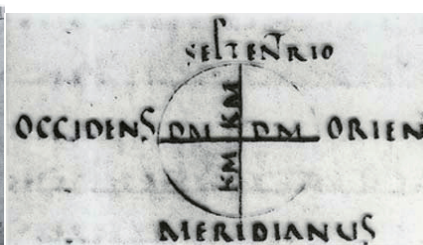 SEPTENTRIO
KM
OCCIDENS DM DM ORIEN
KM
MERIDIANUS